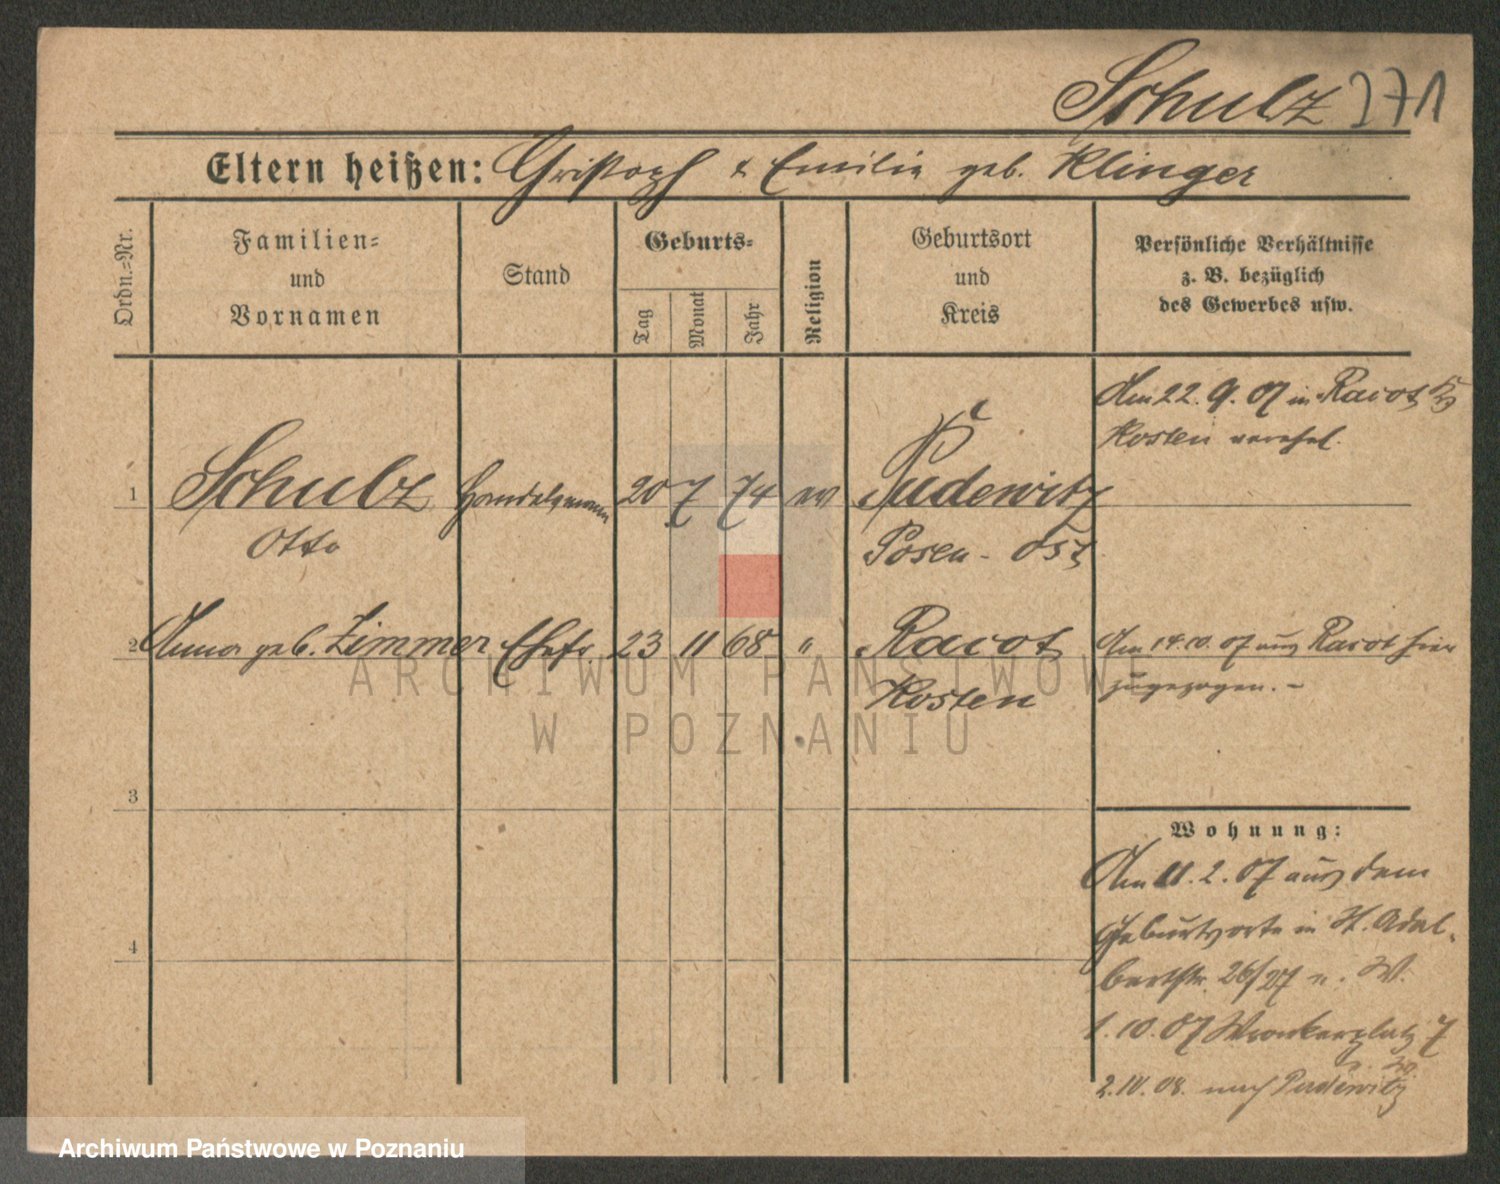 Schulz 371
Eltern heißen: Christoph & Emilie geb. Klinger
Ordn.=Nr.
Familien=
und
Vornamen
Stand
Geburts=
Tag
Monat
Jahr
Religion
Geburtsort
und
Kreis
Persönliche Verhältnisse
z. B. bezüglich
des Gewerbes usw.
Am 22. 9. 07 in Racot Kr
Kosten verehel.
1 Schulz Handelsmann 20 7 74 ev Pudewitz
Otto Posen - Ost
2 Anna geb. Zimmer Ehefr 23 11 68 " Racot
Kosten
Am 14.10.07 aus Racot hier
zugezogen. -
3
4
Wohnung:
Am 11. 2. 07 aus dem
Geburtsorte in St. Adal-
bertstr. 26/27 n. W.
1. 10. 07 Wronkerplatz 7
2. IV. 08. nach Pudewitz
ARCHIWUM PAŃSTWOWE
W POZNANIU
Archiwum Państwowe w Poznaniu